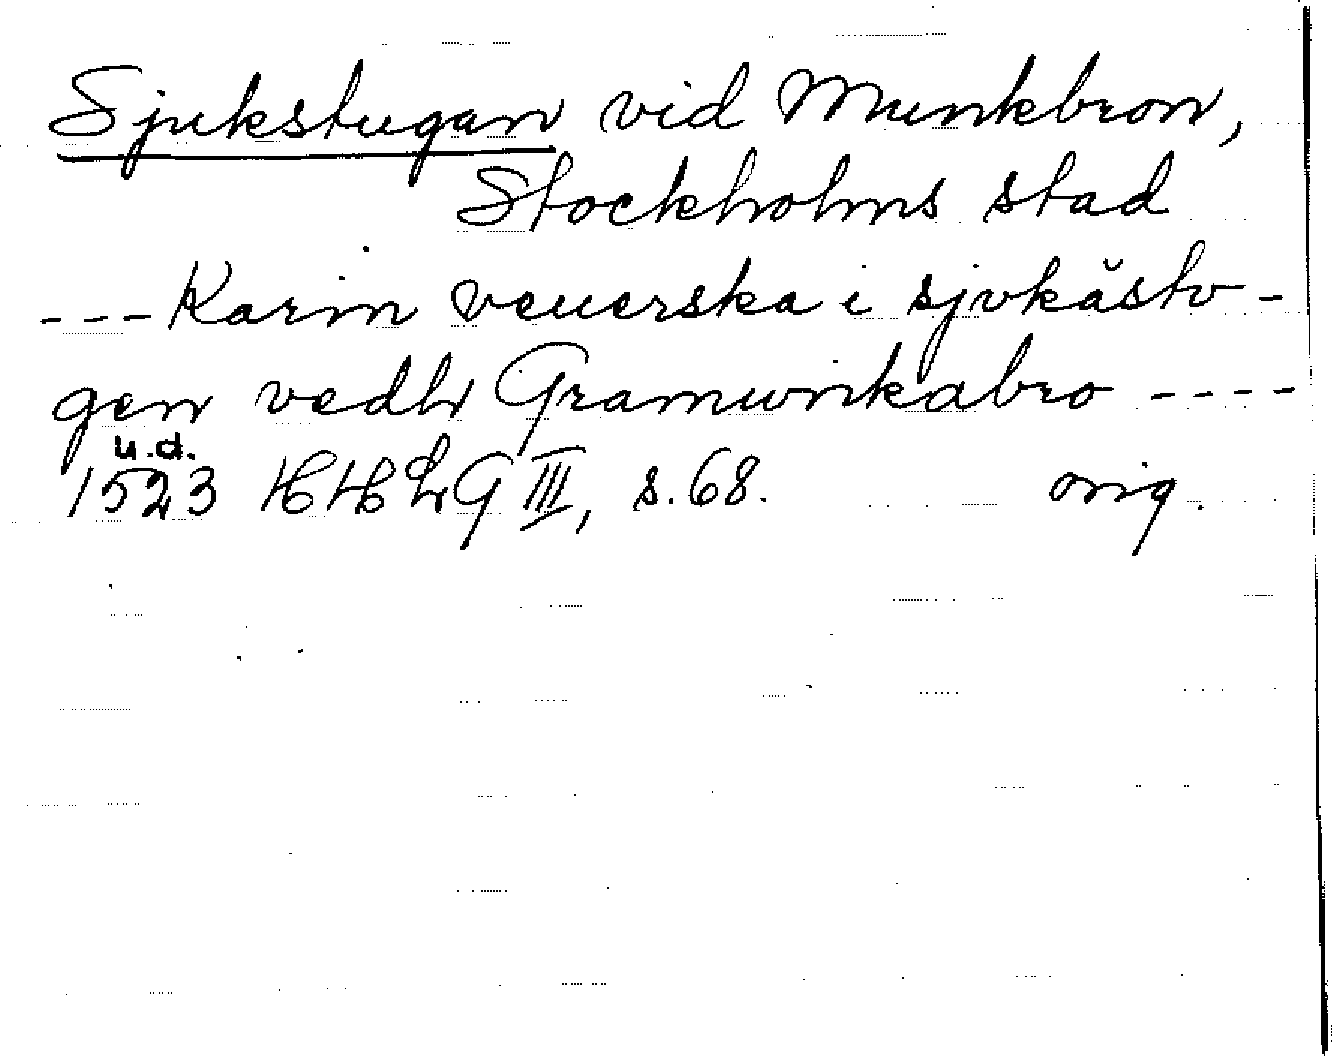 Sjukstugan vid Munkbron,
Stockholms stad
--- Karin veuerska i sjvkästv-
gen vedh Gramwnkabro ----
u.d.
1523 HH Lg III, s. 68. orig.